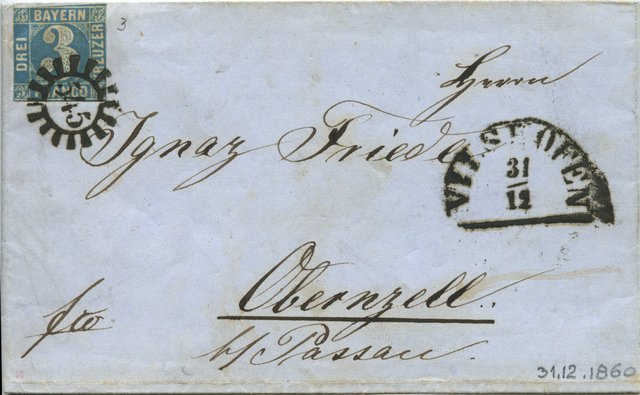 BAYERN
DREI
3
KREUZER
3
Herrn
Ignaz Frieda
VILSHOFEN
31
12
Obernzell.
fco
b/ Passau.
31.12.1860